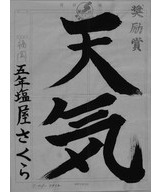 奨励賞
天気
五年塩屋さくら